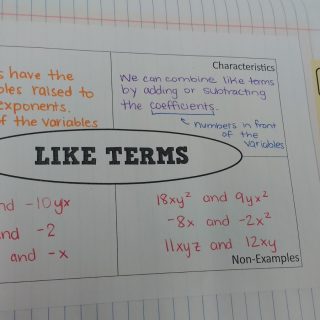 Characteristics
s have the
bles raised to
exponents.
of the variables
We can combine like terms
by adding or subtracting
the coefficients.
numbers in front
of the
variables
LIKE TERMS
nd -10yx
nd -2
and -x
18xy² and 9yx²
-8x and -2x²
11xyz and 12xy
Non-Examples